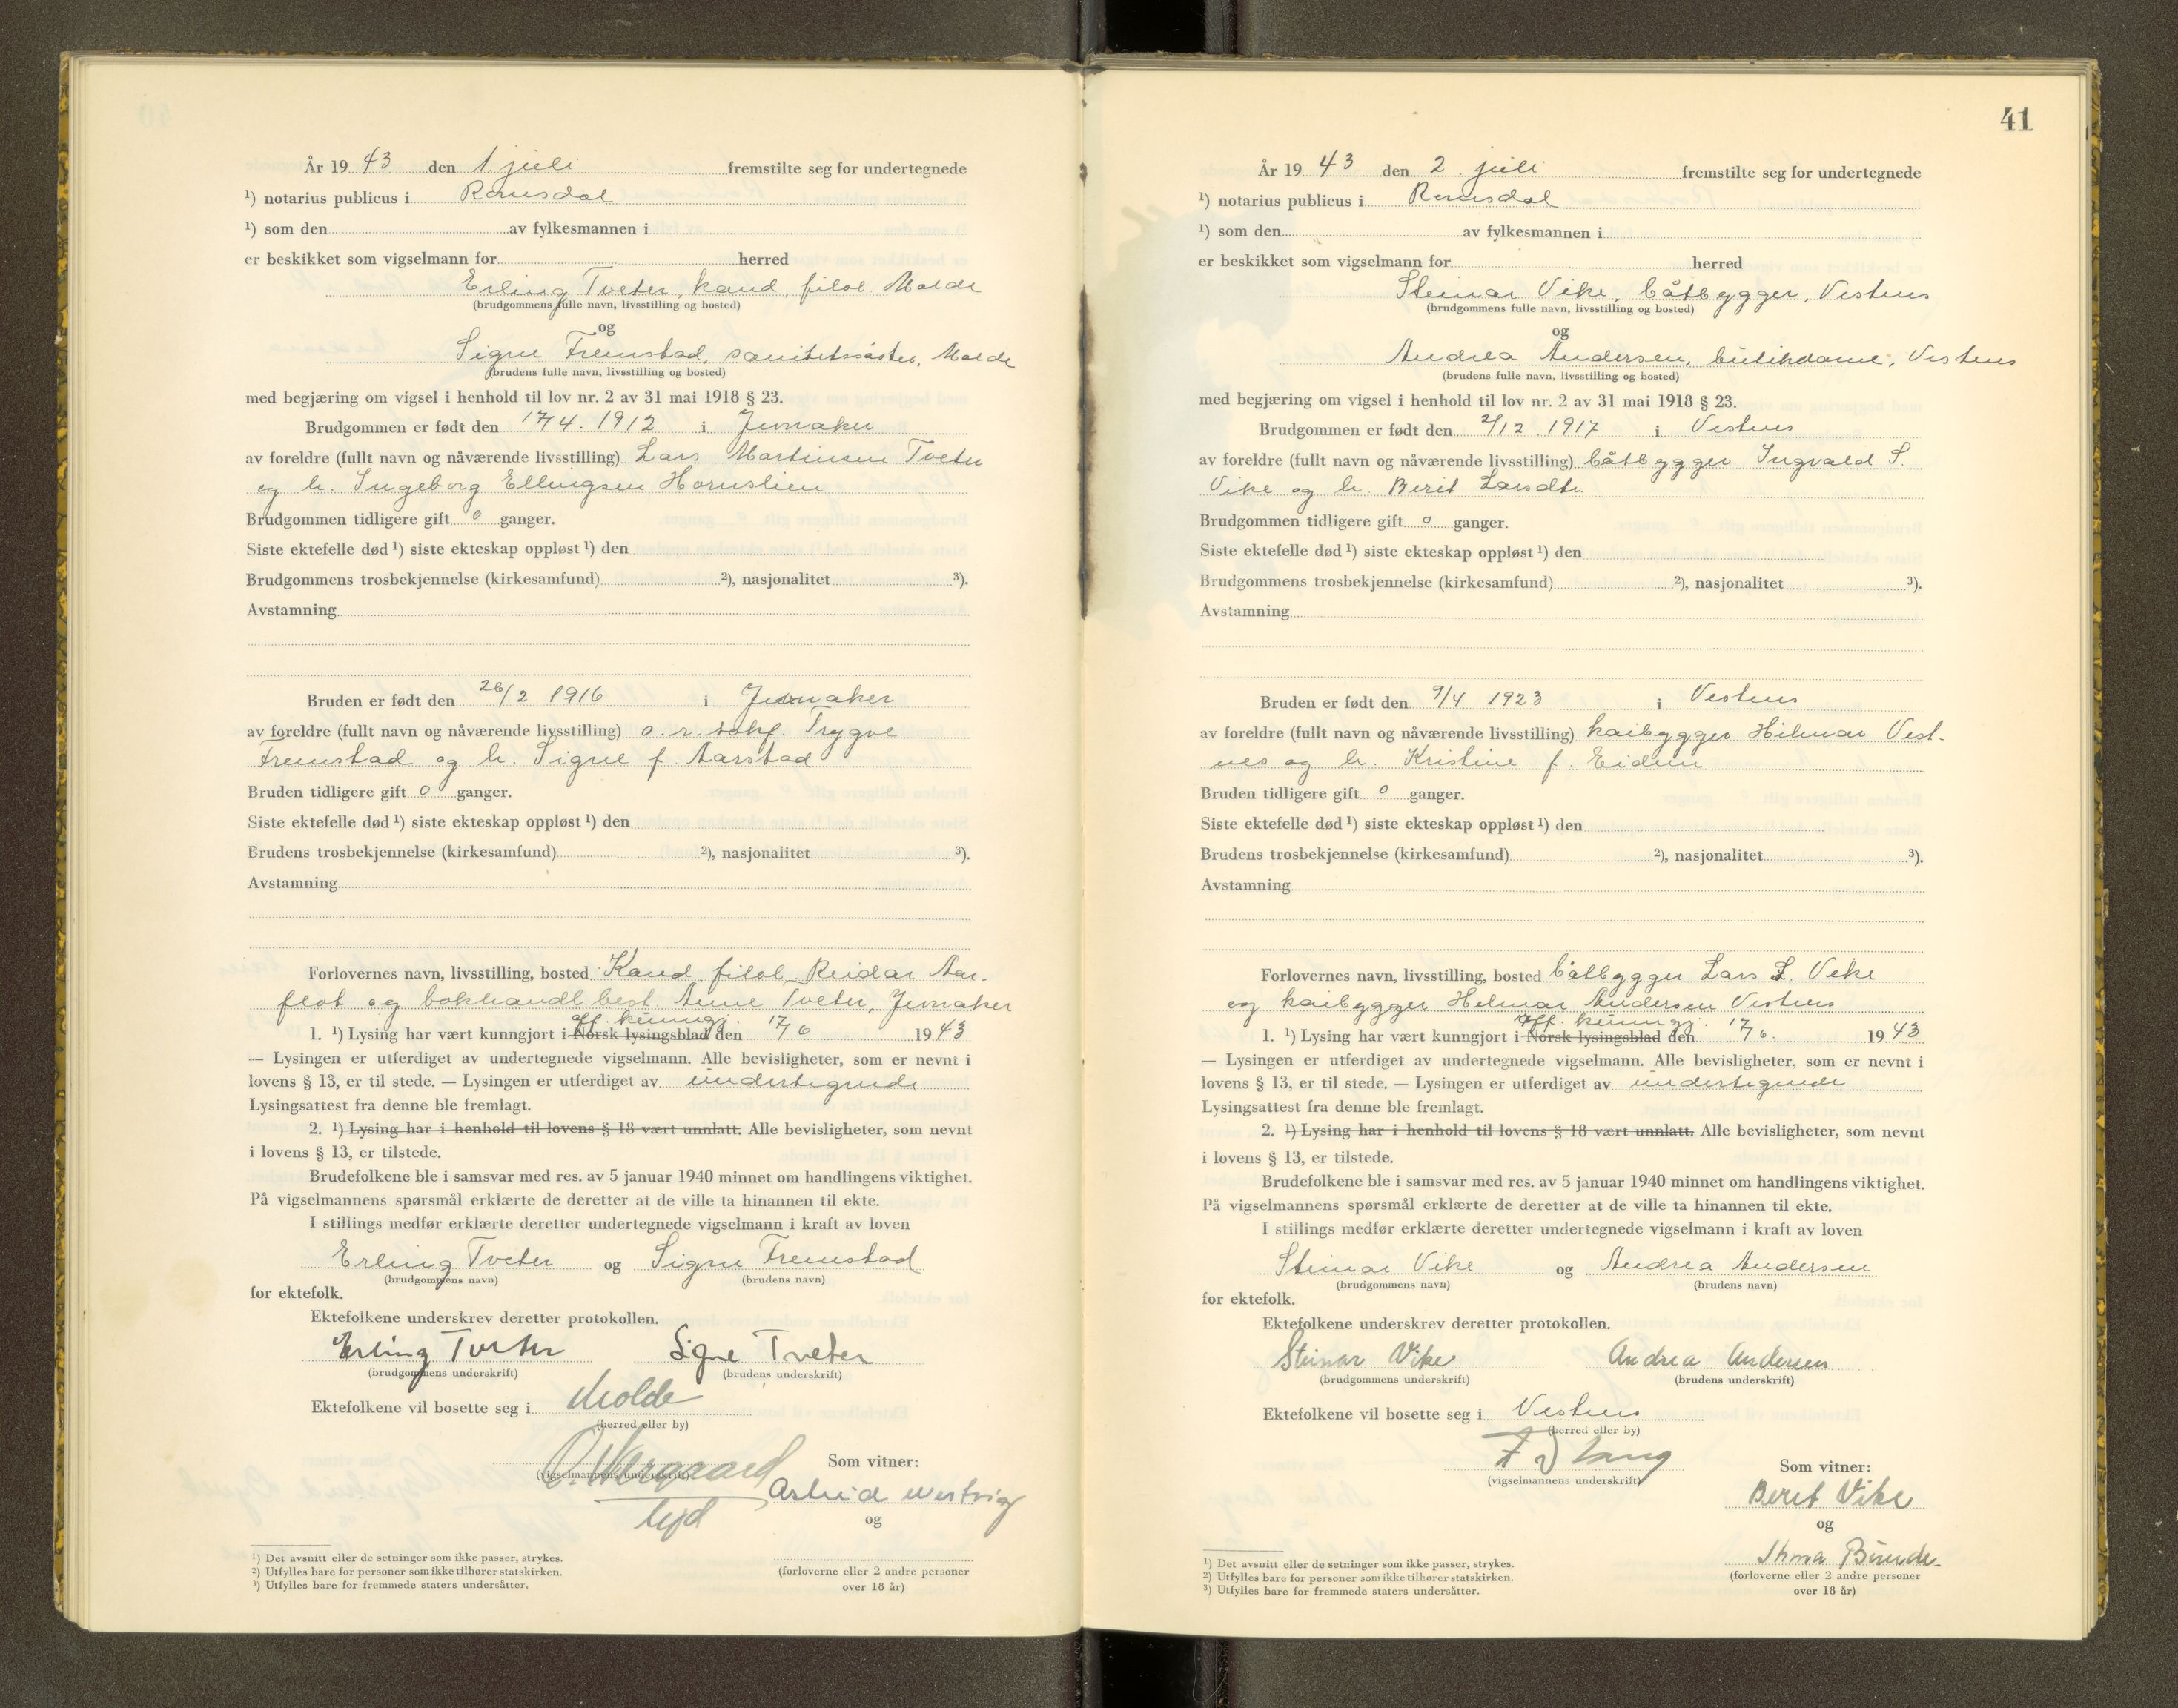 År 1943 den 1 juli fremstilte seg for undertegnede
¹) notarius publicus i Romsdal
¹) som den av fylkesmannen i
er beskikket som vigselmann for herred
Erling Tveter, kand. filol. Molde
(brudgommens fulle navn, livsstilling og bosted)
og
Signe Fremstad, sanitetssøster, Molde
(brudens fulle navn, livsstilling og bosted)
med begjæring om vigsel i henhold til lov nr. 2 av 31 mai 1918 § 23.
Brudgommen er født den 17/4. 1912 i Jevnaker
av foreldre (fullt navn og nåværende livsstilling) Lars Martinsen Tveter
og h. Ingeborg Ellingsen Hornslien
Brudgommen tidligere gift 0 ganger.
Siste ektefelle død ¹) siste ekteskap oppløst ¹) den
Brudgommens trosbekjennelse (kirkesamfund) ²), nasjonalitet ³).
Avstamning
Bruden er født den 26/2 1916 i Jevnaker
av foreldre (fullt navn og nåværende livsstilling) o.r. sakf. Trygve
Fremstad og h. Signe f. Aarstad
Bruden tidligere gift 0 ganger.
Siste ektefelle død ¹) siste ekteskap oppløst ¹) den
Brudens trosbekjennelse (kirkesamfund) ²), nasjonalitet ³).
Avstamning
Forlovernes navn, livsstilling, bosted Kand filol. Reidar Aar-
flot og bokhandl.best. Anne Tveter, Jevnaker
off. kunngj.
1. ¹) Lysing har vært kunngjort i Norsk lysingsblad den 17/6 1943
— Lysingen er utferdiget av undertegnede vigselmann. Alle bevisligheter, som er nevnt i
lovens § 13, er til stede. — Lysingen er utferdiget av undertegnede
Lysingsattest fra denne ble fremlagt.
2. ¹) Lysing har i henhold til lovens § 18 vært unnlatt. Alle bevisligheter, som nevnt
i lovens § 13, er tilstede.
Brudefolkene ble i samsvar med res. av 5 januar 1940 minnet om handlingens viktighet.
På vigselmannens spørsmål erklærte de deretter at de ville ta hinannen til ekte.
I stillings medfør erklærte deretter undertegnede vigselmann i kraft av loven
Erling Tveter og Signe Fremstad
(brudgommens navn) (brudens navn)
for ektefolk.
Ektefolkene underskrev deretter protokollen.
Erling Tveter Signe Tveter
(brudgommens underskrift) (brudens underskrift)
Ektefolkene vil bosette seg i Molde
(herred eller by)
(vigselmannens underskrift) Som vitner:
Astrid
og
¹) Det avsnitt eller de setninger som ikke passer, strykes.
²) Utfylles bare for personer som ikke tilhører statskirken.
³) Utfylles bare for fremmede staters undersåtter.
(forloverne eller 2 andre personer
over 18 år)
41
År 1943 den 2 juli fremstilte seg for undertegnede
¹) notarius publicus i Romsdal
¹) som den av fylkesmannen i
er beskikket som vigselmann for herred
Steinar Vike, båtbygger, Vestnes
(brudgommens fulle navn, livsstilling og bosted)
og
Andrea Andersen, butikdame, Vestnes
(brudens fulle navn, livsstilling og bosted)
med begjæring om vigsel i henhold til lov nr. 2 av 31 mai 1918 § 23.
Brudgommen er født den 2/12. 1917 i Vestnes
av foreldre (fullt navn og nåværende livsstilling) båtbygger Ingvald S.
Vike og h. Berit Larsdtr.
Brudgommen tidligere gift 0 ganger.
Siste ektefelle død ¹) siste ekteskap oppløst ¹) den
Brudgommens trosbekjennelse (kirkesamfund) ²), nasjonalitet ³).
Avstamning
Bruden er født den 9/4 1923 i Vestnes
av foreldre (fullt navn og nåværende livsstilling) kaibygger Hilmar Vest-
nes og h. Kristine f. Eidem
Bruden tidligere gift 0 ganger.
Siste ektefelle død ¹) siste ekteskap oppløst ¹) den
Brudens trosbekjennelse (kirkesamfund) ²), nasjonalitet ³).
Avstamning
Forlovernes navn, livsstilling, bosted båtbygger Lars Vike
og kaibygger Helmar Andersen Vestnes
off. kunngj.
1. ¹) Lysing har vært kunngjort i Norsk lysingsblad den 17/6. 1943
— Lysingen er utferdiget av undertegnede vigselmann. Alle bevisligheter, som er nevnt i
lovens § 13, er til stede. — Lysingen er utferdiget av undertegnede
Lysingsattest fra denne ble fremlagt.
2. ¹) Lysing har i henhold til lovens § 18 vært unnlatt. Alle bevisligheter, som nevnt
i lovens § 13, er tilstede.
Brudefolkene ble i samsvar med res. av 5 januar 1940 minnet om handlingens viktighet.
På vigselmannens spørsmål erklærte de deretter at de ville ta hinannen til ekte.
I stillings medfør erklærte deretter undertegnede vigselmann i kraft av loven
Steinar Vike og Andrea Andersen
(brudgommens navn) (brudens navn)
for ektefolk.
Ektefolkene underskrev deretter protokollen.
Steinar Vike Andrea Andersen
(brudgommens underskrift) (brudens underskrift)
Ektefolkene vil bosette seg i Vestnes
(herred eller by)
(vigselmannens underskrift) Som vitner:
Berit Vike
og
¹) Det avsnitt eller de setninger som ikke passer, strykes.
²) Utfylles bare for personer som ikke tilhører statskirken.
³) Utfylles bare for fremmede staters undersåtter.
(forloverne eller 2 andre personer
over 18 år)